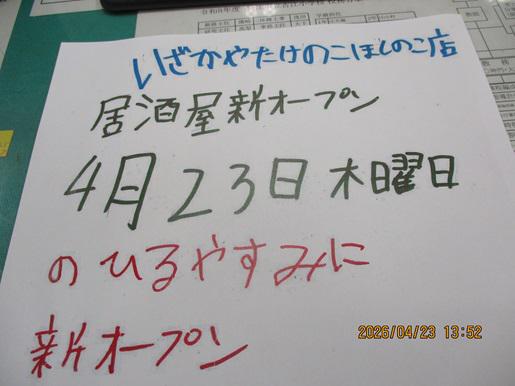 いざかやたけのこほしのこ店
居酒屋新オープン
4月23日木曜日
のひるやすみに
新オープン
2026/04/23 13:52